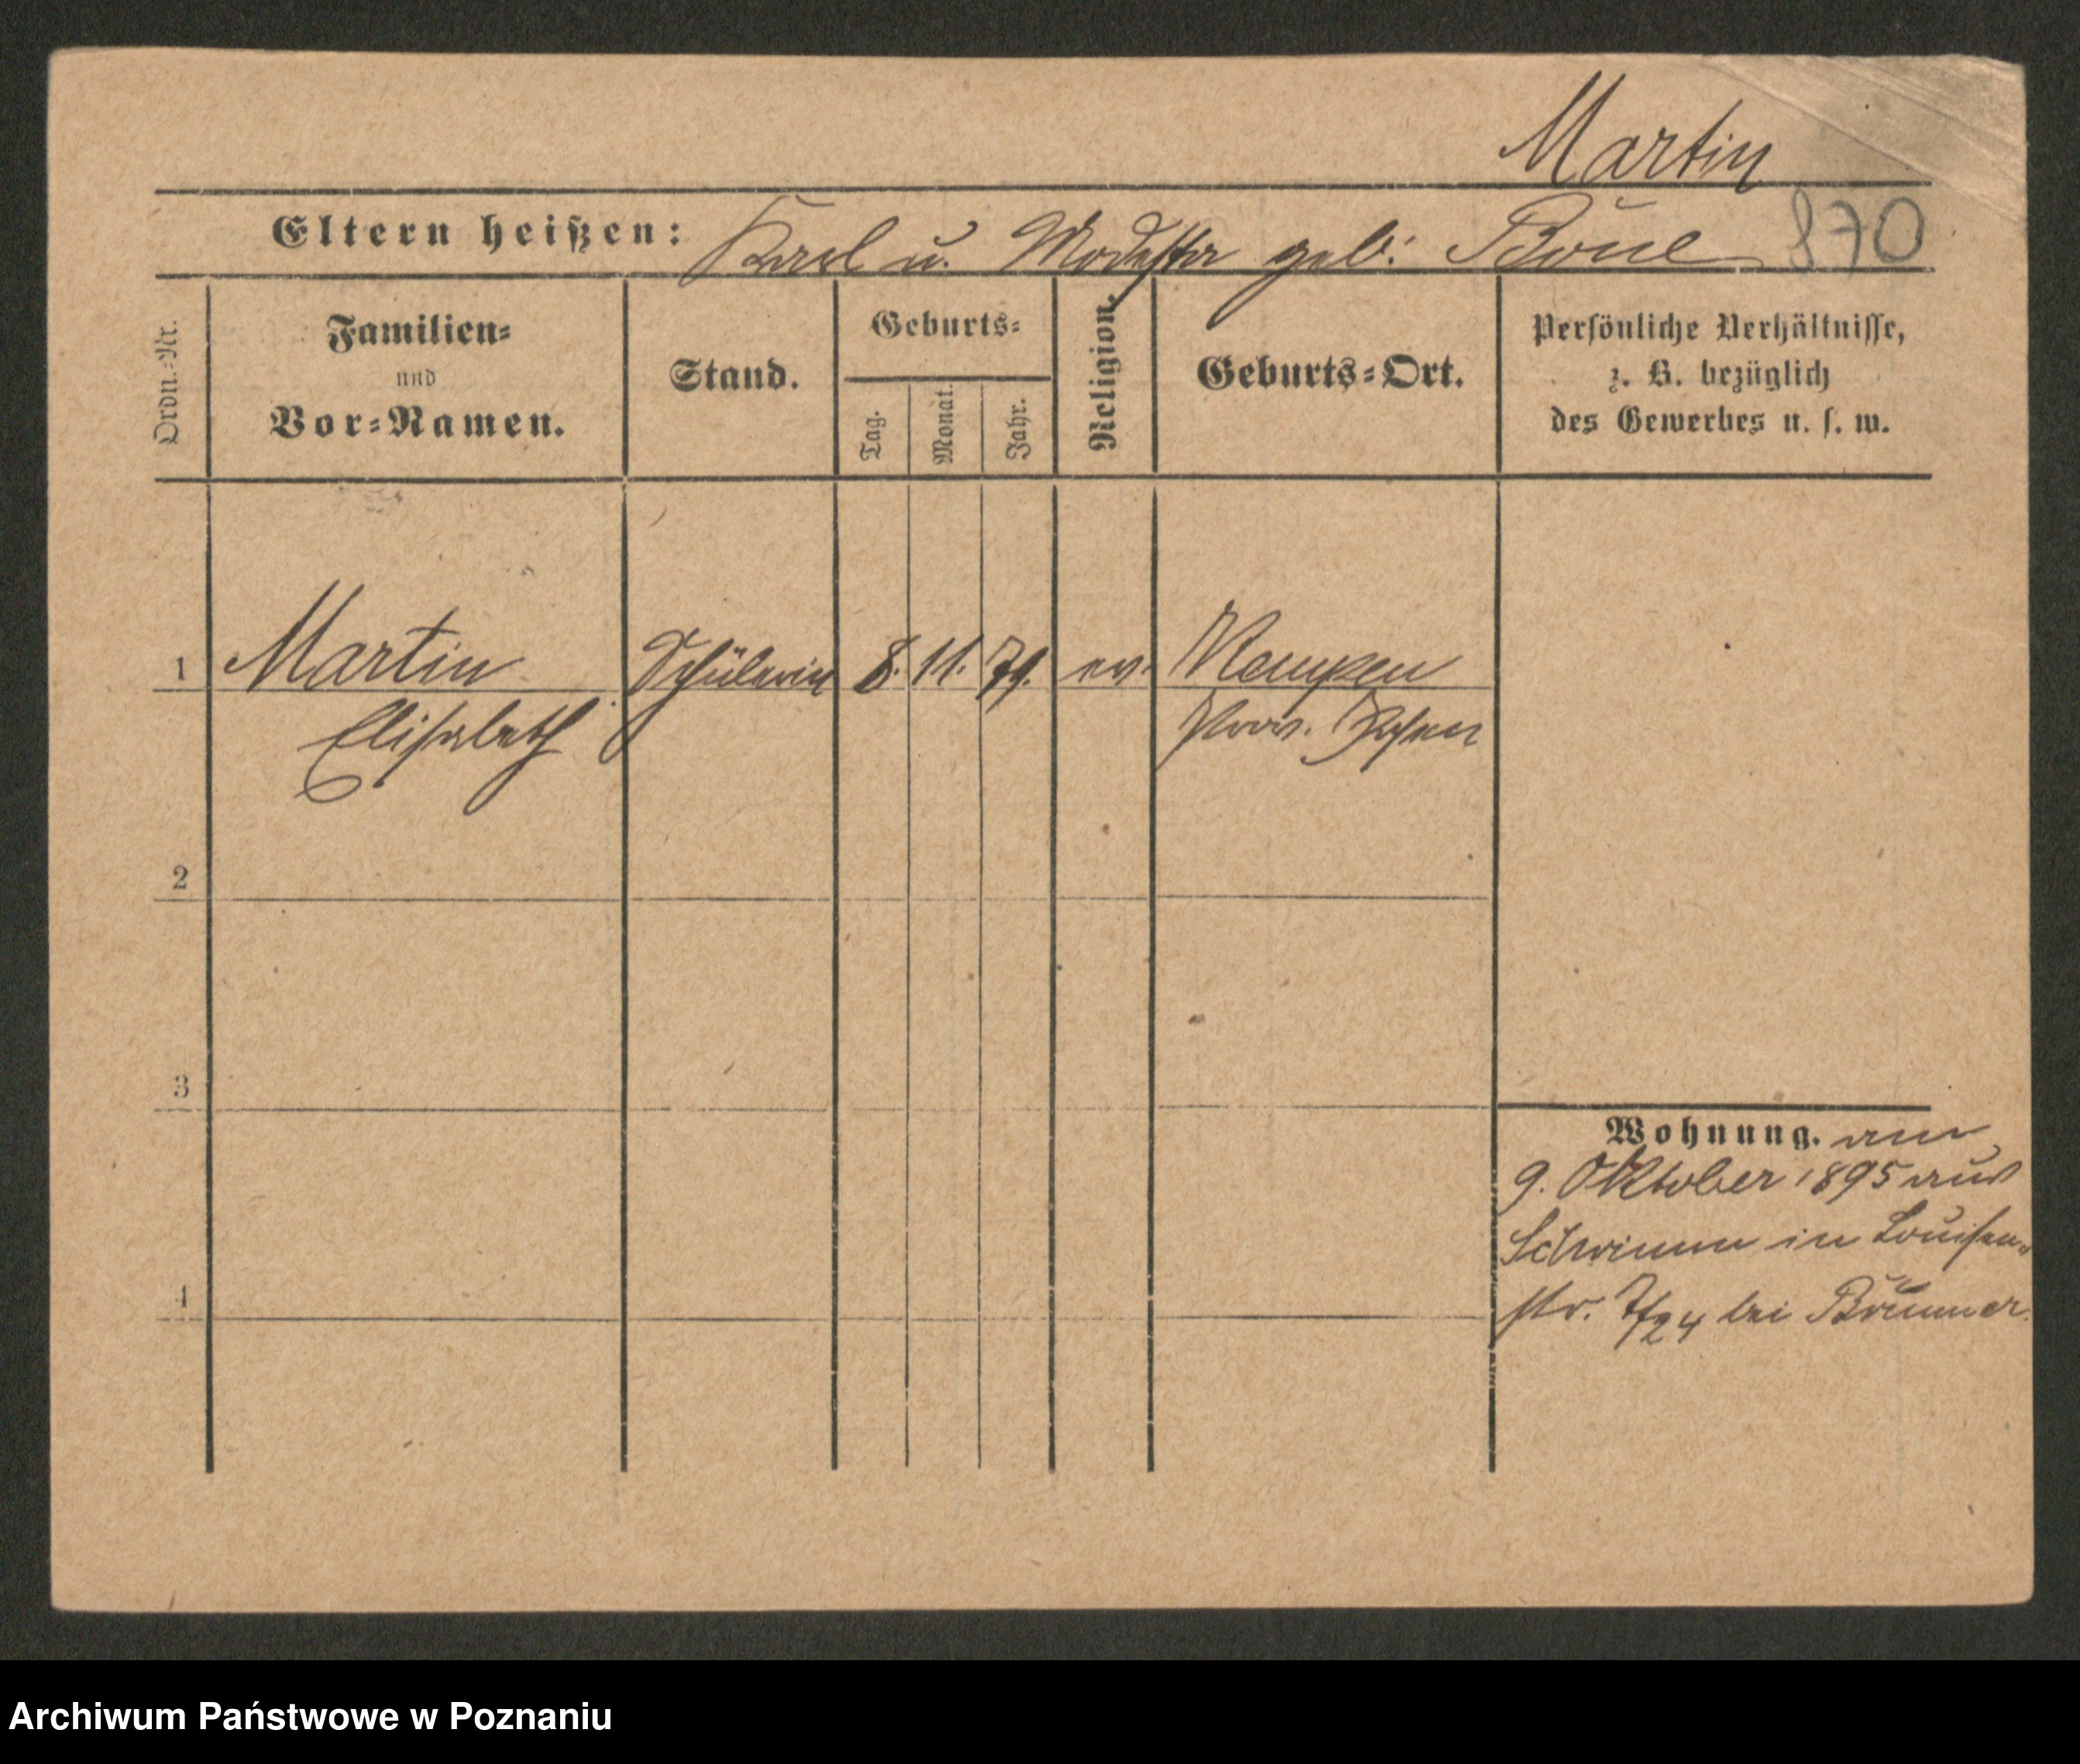 Martin
Eltern heißen: Karl u. Modesta geb. 870
Ordn.-Nr.
Familien-
und
Vor-Namen.
Stand.
Geburts-
Tag.
Monat.
Jahr.
Religion.
Geburts-Ort.
Persönliche Verhältnisse,
z. B. bezüglich
des Gewerbes u. s. w.
1 Martin Schülerin 8. 11. 79. ev. Kempen
Elisabeth Prov. Posen
2
3
Wohnung. am
9. Oktober 1895 aus
in Louisen-
4
str. 7/24 bei
Archiwum Państwowe w Poznaniu